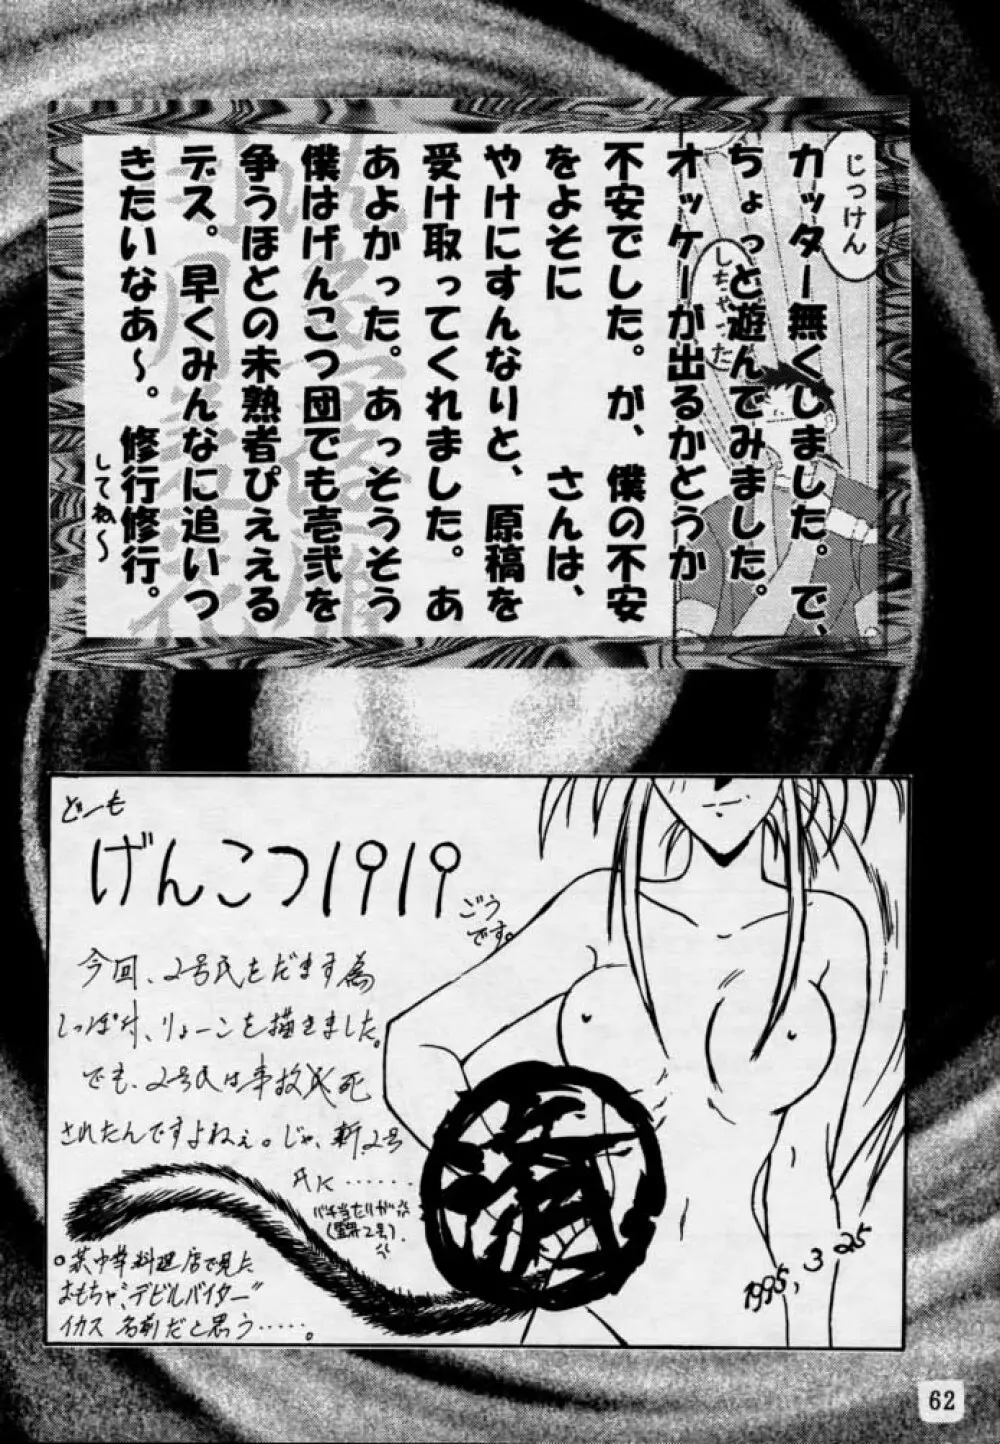 じっけん
しちゃった
カッター無くしました。で、
ちょっと遊んでみました。
オッケーが出るかとうか
不安でした。が、僕の不安
をよそに　　　さんは、
やけにすんなりと、原稿を
受け取ってくれました。あ
あよかった。あっそうそう
僕はげんこつ団でも壱弐を
争うほどの未熟者ぴええる
デス。早くみんなに追いつ
きたいなあ～。修行修行。
してね～
どーも
げんこつ1919
ごう
です。
今回、2号氏をだます為
しっぽ付、りょーこを描きました。
でも、2号氏は事故死
されたんですよねぇ。じゃ、新2号
氏に‥‥‥
バチ当たりが
済
1995, 3 25
○某中華料理店で見た
おもちゃ“デビルバイター”
イカス名前だと思う‥‥‥。
62